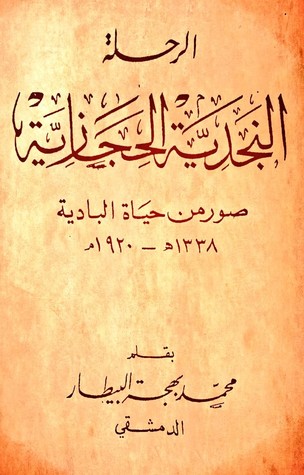 الرحلة
النجدية الحجازية
صور من حياة البادية
١٣٣٨هـ - ١٩٢٠م
بقلم
محمد بهجة البيطار
الدمشقي